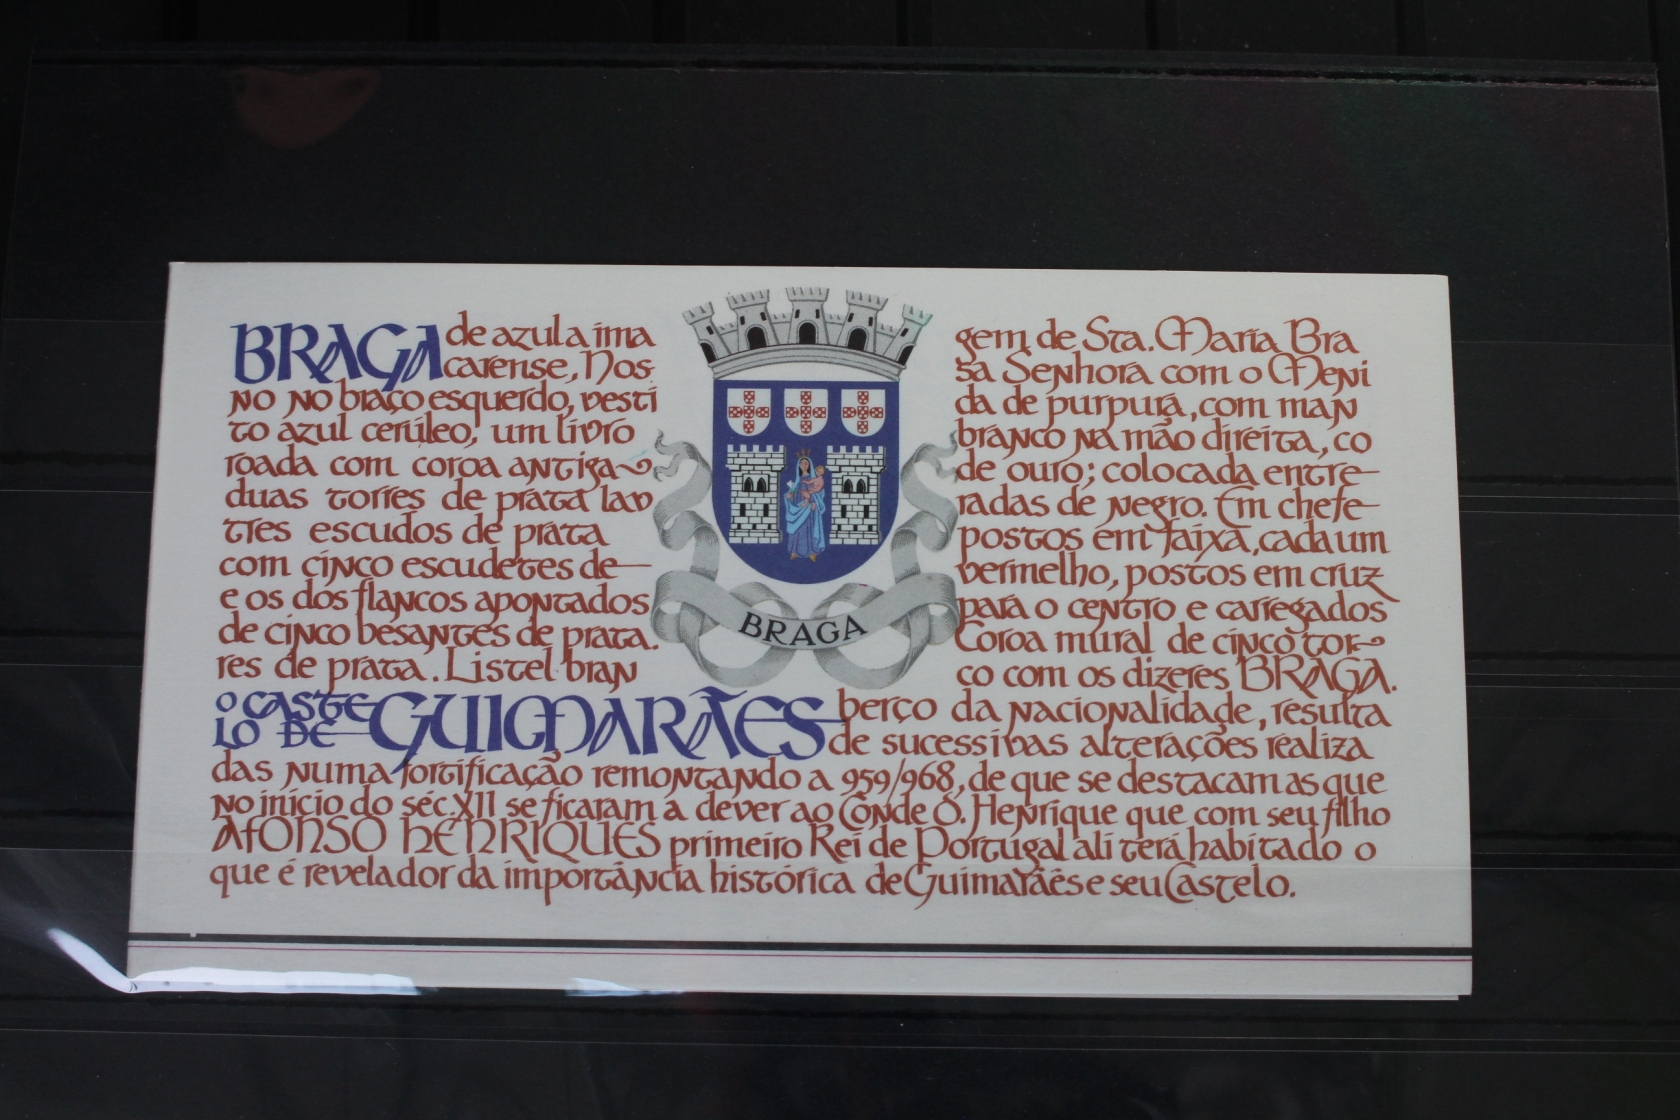 BRAGA de azul a ima gem de Sta. Maria Bra
carense, Nos- sa Senhora com o Meni
no no braço esquerdo, vesti da de purpura, com man
to azul ceruleo, um livro branco na mão direita, co
roada com coroa antiga de ouro; colocada entre
duas torres de prata lav radas de negro. Em chefe
tres escudos de prata postos em faixa, cada um
com cinco escudetes de vermelho, postos em cruz
e os dos flancos apontados para o centro e carregados
de cinco besantes de prata. Coroa mural de cinco tor
res de prata. Listel bran co com os dizeres BRAGA.
BRAGA
O CASTE
LO DE GUIMARÃES berço da nacionalidade, resulta
de sucessivas alterações realiza
das numa fortificação remontando a 959/968, de que se destacam as que
no início do séc. XII se ficaram a dever ao Conde D. Henrique que com seu filho
AFONSO HENRIQUES primeiro Rei de Portugal ali terá habitado o
que é revelador da importância histórica de Guimarães e seu Castelo.